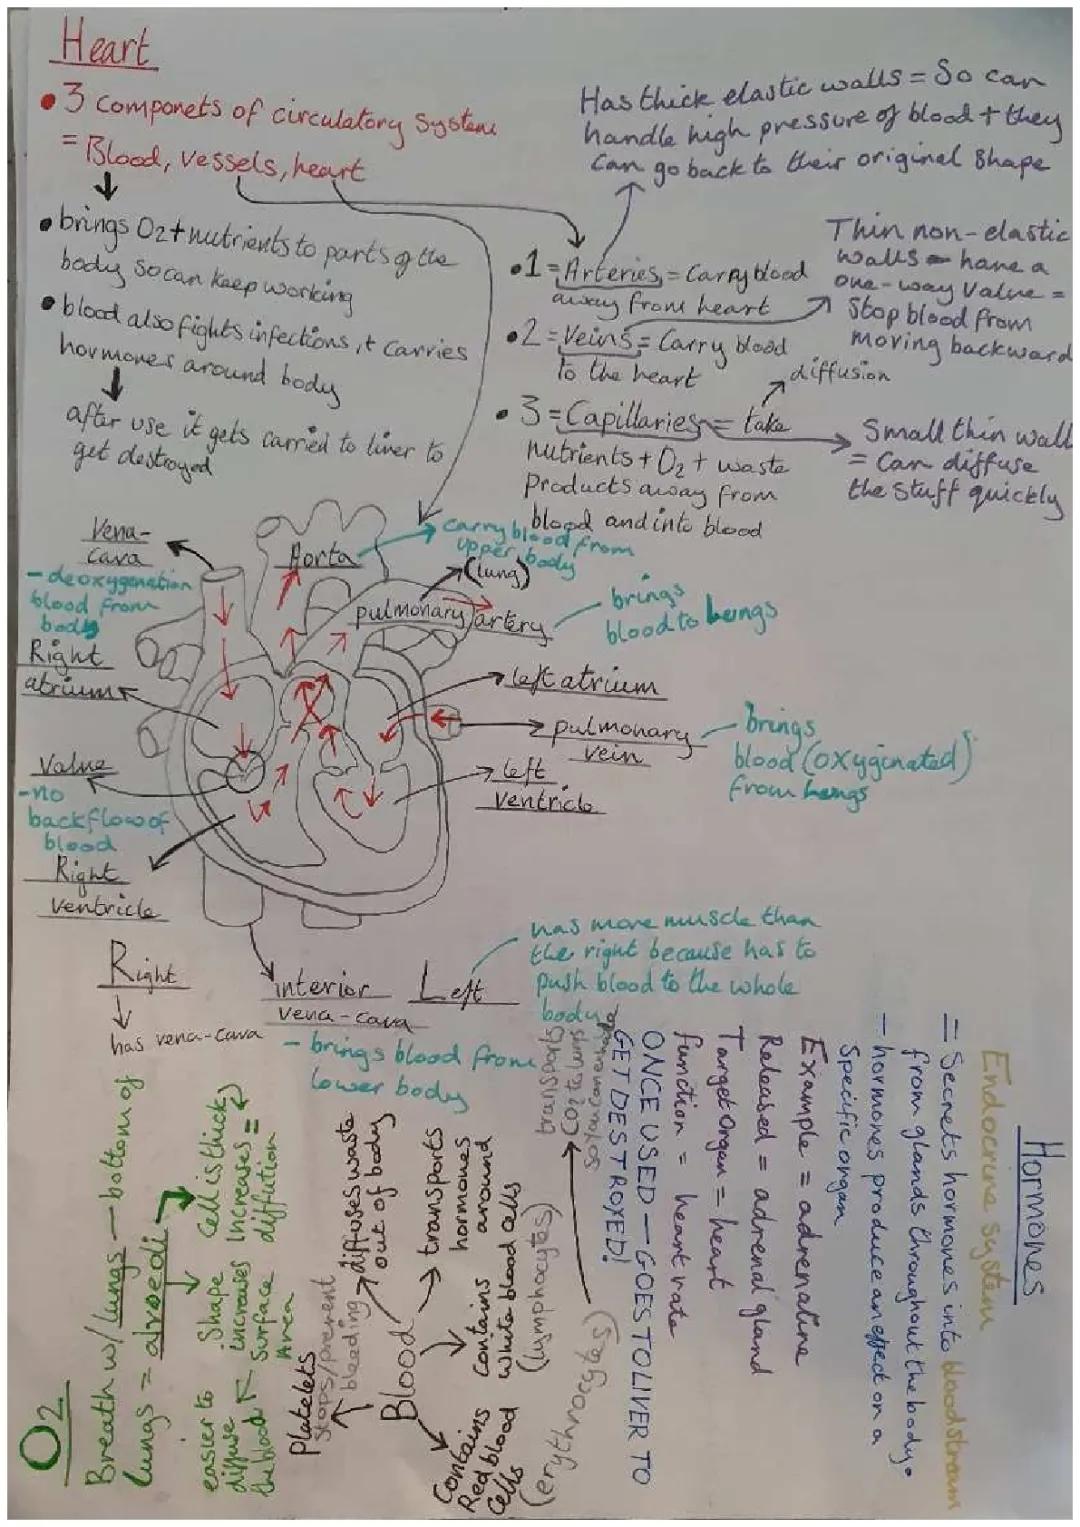 Heart
• 3 componets of circulatory system
= Blood, vessels, heart
• brings O2 + nutrients to parts of the
body so can keep working
• blood also fights infections, + carries
hormones around body
after use it gets carried to liver to
get destroyed
Has thick elastic walls = So can
handle high pressure of blood + they
can go back to their original shape
• 1 = Arteries = Carry blood
away from heart
Thin non-elastic
walls - have a
one-way valve =
Stop blood from
moving backward
• 2 = Veins = Carry blood
to the heart
diffusion
• 3 = Capillaries = take
nutrients + O2 + waste
Products away from
blood and into blood
Small thin wall
= Can diffuse
the stuff quickly
Vena-
cava
- deoxygenation
blood from
body
Aorta
carry blood from
upper body
(lung)
pulmonary artery
brings
blood to lungs
Right
atrium
left atrium
pulmonary
vein
brings
blood (oxyginated)
from lungs
Valve
- no
backflow of
blood
left
ventricle
Right
ventricle
interior
vena-cava
- brings blood from
lower body
Right
has vena-cava
Left
has more muscle than
the right because has to
push blood to the whole
body
Hormones
Endocrine system
= Secrets hormones into bloodstream
from glands throughout the body.
- hormones produce an effect on a
specific organ
Example = adrenaline
Released = adrenal gland
Target organ = heart
function = heart rate
ONCE USED - GOES TO LIVER TO
GET DESTROYED!
O2
Breath w/ lungs - bottom of
lungs = alveoli
Cell is thick
Increases =
diffution
Shape
increases
Surface
Area
easier to
diffuse
the blood
Blood
Platelets
Stops/prevent
bleading
diffuses waste
out of body
transports
hormones
around
Contains
white blood cells
(lymphocytes)
Contains
Red blood
Cells
(erythrocytes)
transports
CO2 to lungs